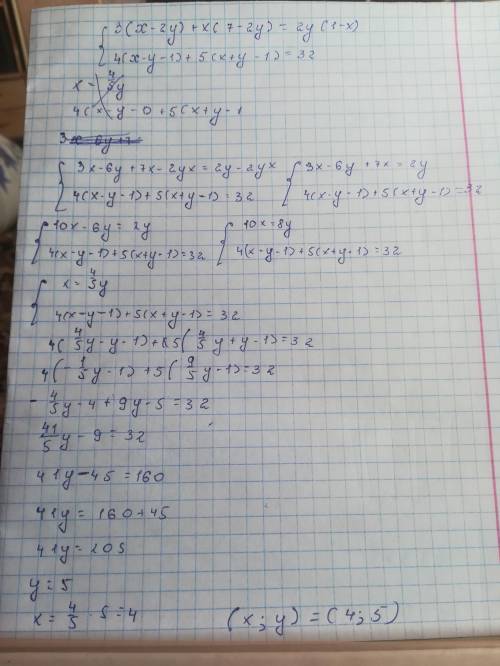 { 3(x-2y)+x(7-2y)=2y(1-x)
4(x-y-1)+5(x+y-1)=32
x=4/5y
4(x-y-0+5(x+y-1
3x-6y+7
{ 3x-6y+7x-2yx=2y-2yx { 3x-6y+7x=2y
4(x-y-1)+5(x+y-1)=32 4(x-y-1)+5(x+y-1)=32
{ 10x-6y=2y { 10x=8y
4(x-y-1)+5(x+y-1)=32 4(x-y-1)+5(x+y-1)=32
{ x=4/5y
4(x-y-1)+5(x+y-1)=32
4(4/5y-y-1)+5(4/5y+y-1)=32
4(-1/5y-1)+5(9/5y-1)=32
-4/5y-4+9y-5=32
41/5y-9=32
41y-45=160
41y=160+45
41y=205
y=5
x=4/5·5=4 (x;y)=(4;5)